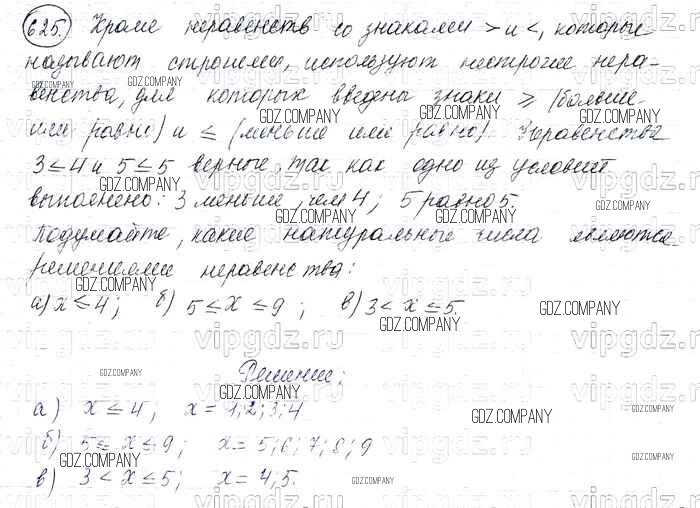 625. Кроме неравенств со знаками > и <, которые
называют строгими, используют нестрогие нера-
венства, для которых введены знаки ≥ (больше
или равно) и ≤ (меньше или равно). Неравенства
3 ≤ 4 и 5 ≤ 5 верные, так как одно из условий
выполнено: 3 меньше, чем 4; 5 равно 5.
Подумайте, какие натуральные числа являются
решениями неравенства:
а) x ≤ 4; б) 5 ≤ x ≤ 9; в) 3 < x ≤ 5.
Решение:
а) x ≤ 4; x = 1; 2; 3; 4
б) 5 ≤ x ≤ 9; x = 5; 6; 7; 8; 9
в) 3 < x ≤ 5; x = 4; 5.